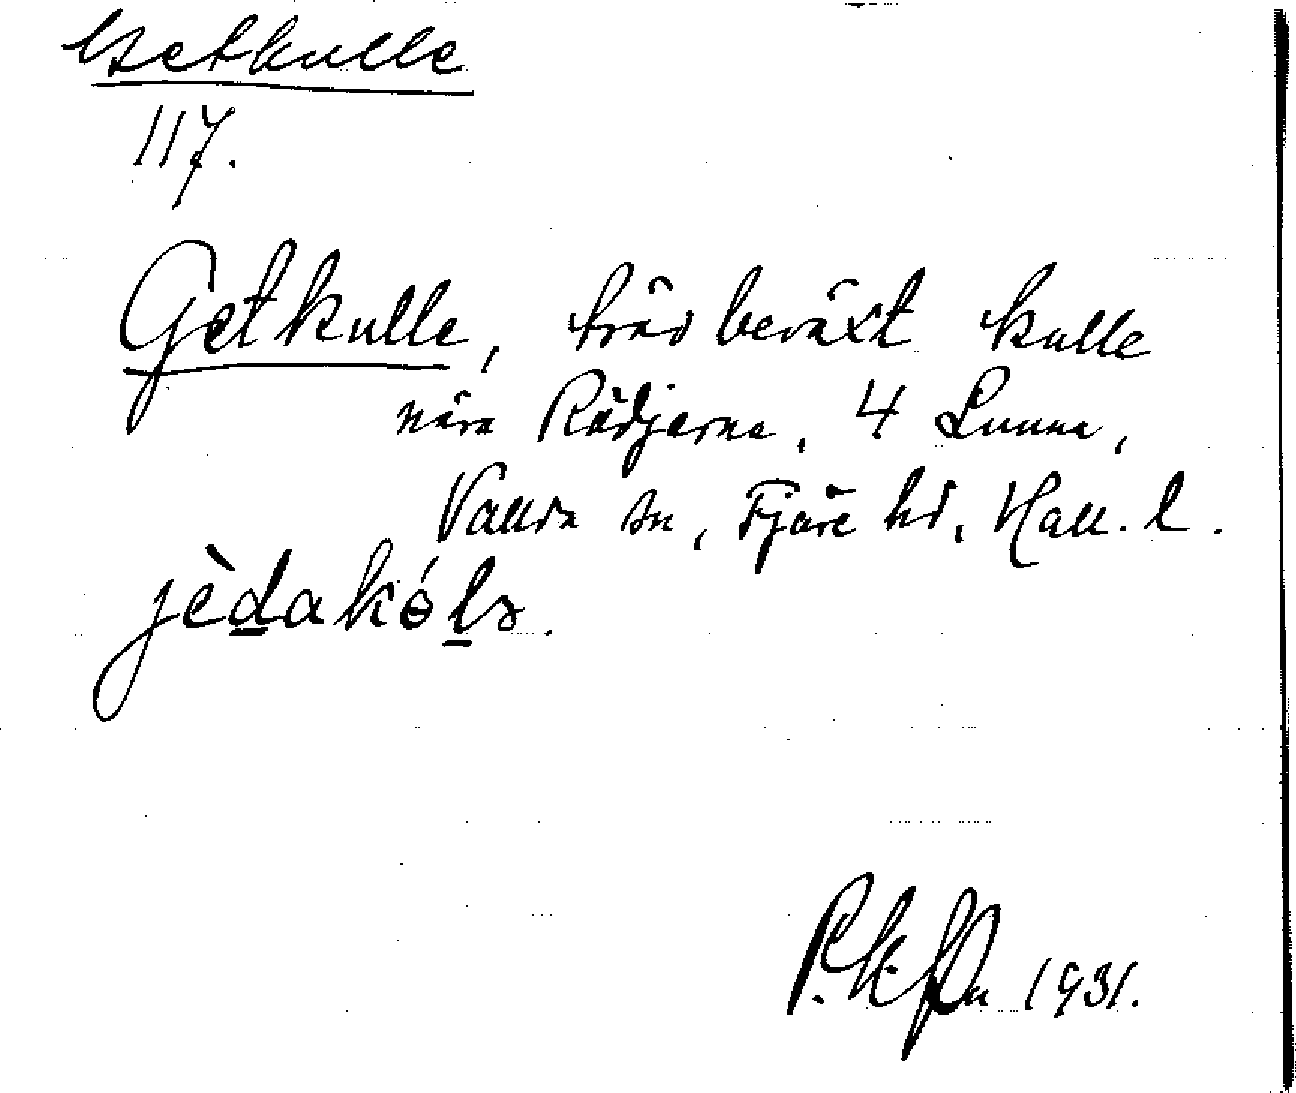 Getkulle
117.
Getkulle, trädbeväxt kulle
nära Rädjerna, 4 Lunna,
Vallda sn, Fjäre hd, Hall. l.
jèd̲akól̲ə.
1931.